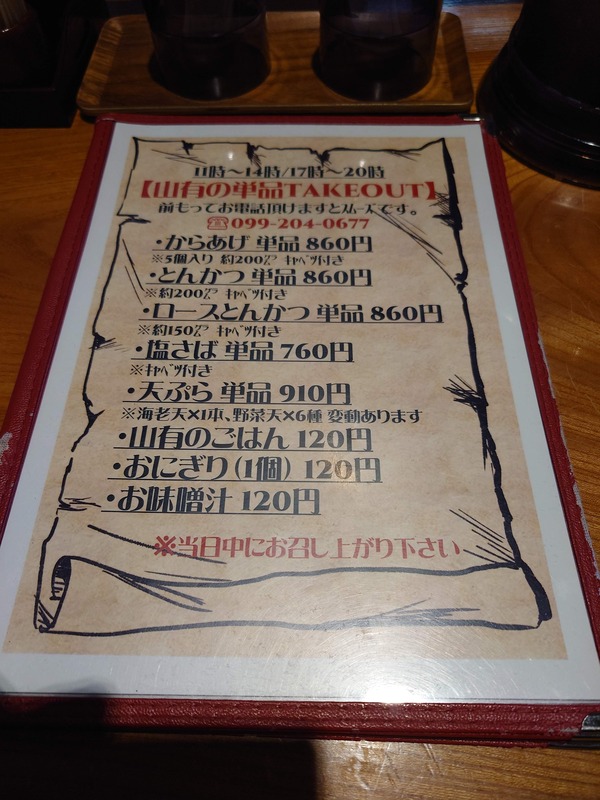 11時～14時/17時～20時
【山有の単品TAKEOUT】
前もってお電話頂けますとスムーズです。
☎099-204-0677
・からあげ 単品 860円
※5個入り 約200㌘ ｷｬﾍﾞﾂ付き
・とんかつ 単品 860円
※約200㌘ ｷｬﾍﾞﾂ付き
・ロースとんかつ 単品 860円
※約150㌘ ｷｬﾍﾞﾂ付き
・塩さば 単品 760円
※ｷｬﾍﾞﾂ付き
・天ぷら 単品 910円
※海老天×1本、野菜天×6種 変動あります
・山有のごはん 120円
・おにぎり(1個) 120円
・お味噌汁 120円
※当日中にお召し上がり下さい